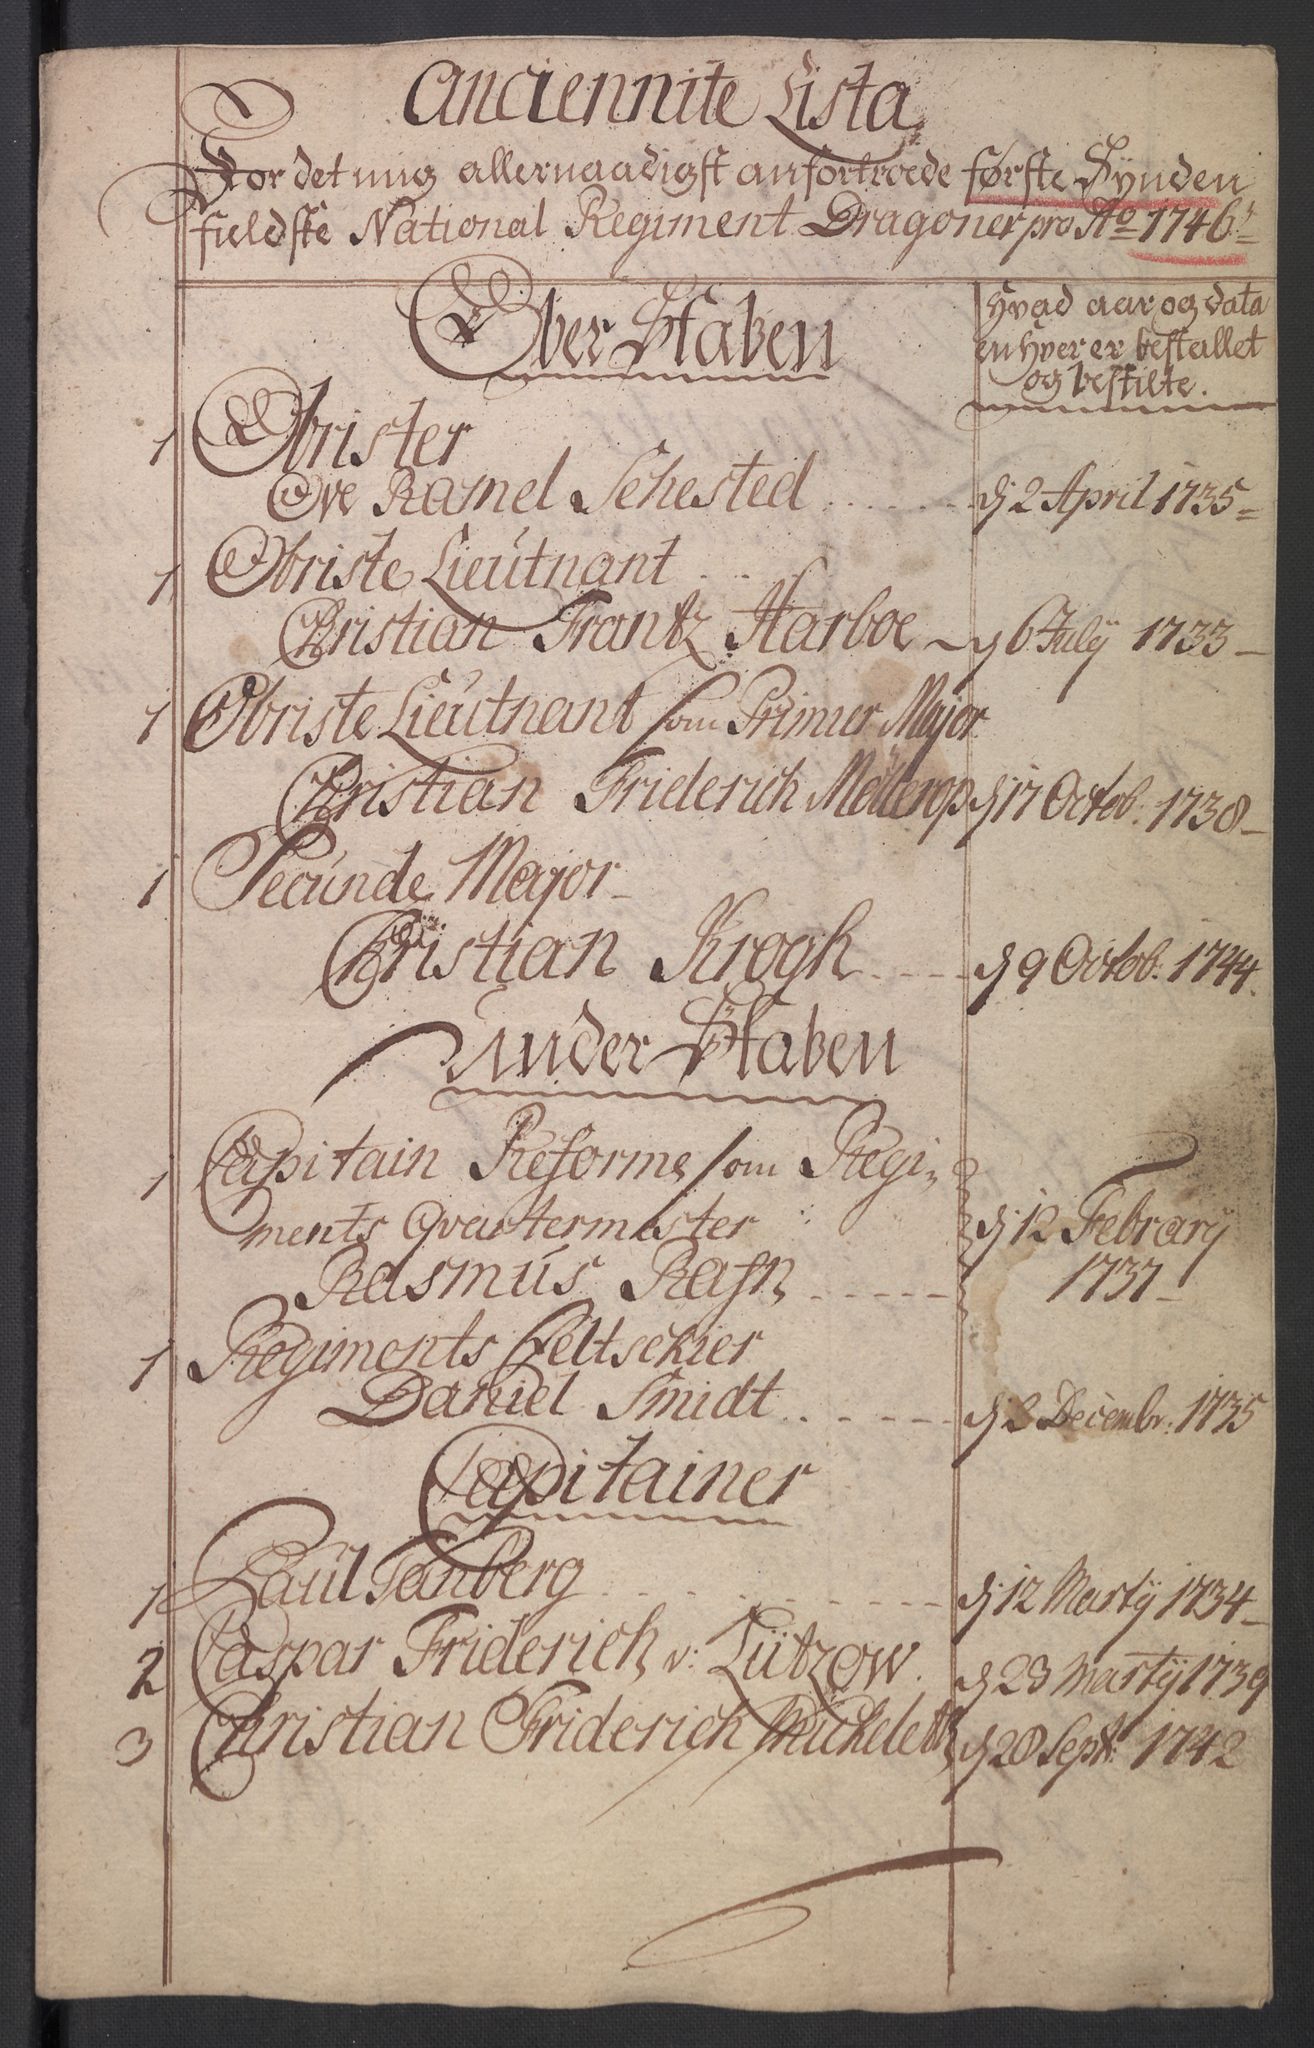 Anciennite Lista
For det mig allernaadigst anfortroede første Synden
fieldske National Regiment Dragoner pro Ao 1746
Ober Staben
Hvad aar og data
en hver er bestallet
og bestilte.
1 Obrister
Ove Ramel Sehested d 2 April 1735
1 Obriste Lieutnant
Christian Frantz Harboe d 6 July 1733
1 Obriste Lieutnant som Primier Major
Christian Friderich Møllerop d 17 Octob. 1738
1 Secunde Major
Christian Krogh d 9 Octob: 1744.
Under Staben
1 Capitain Reforme som Regi-
ments Qvartermester d 12 Febrary
Rasmus Rafn 1737
1 Regiments Feltschier
Daniel Smidt d 3 Decembr: 1735
Capitainer
1 Paul Isenberg d 12 Marty 1734
2 Caspar Friderich v: Lützow. d 23 Marty 1739
3 Christian Friderich Michelet d 20 Sept: 1742